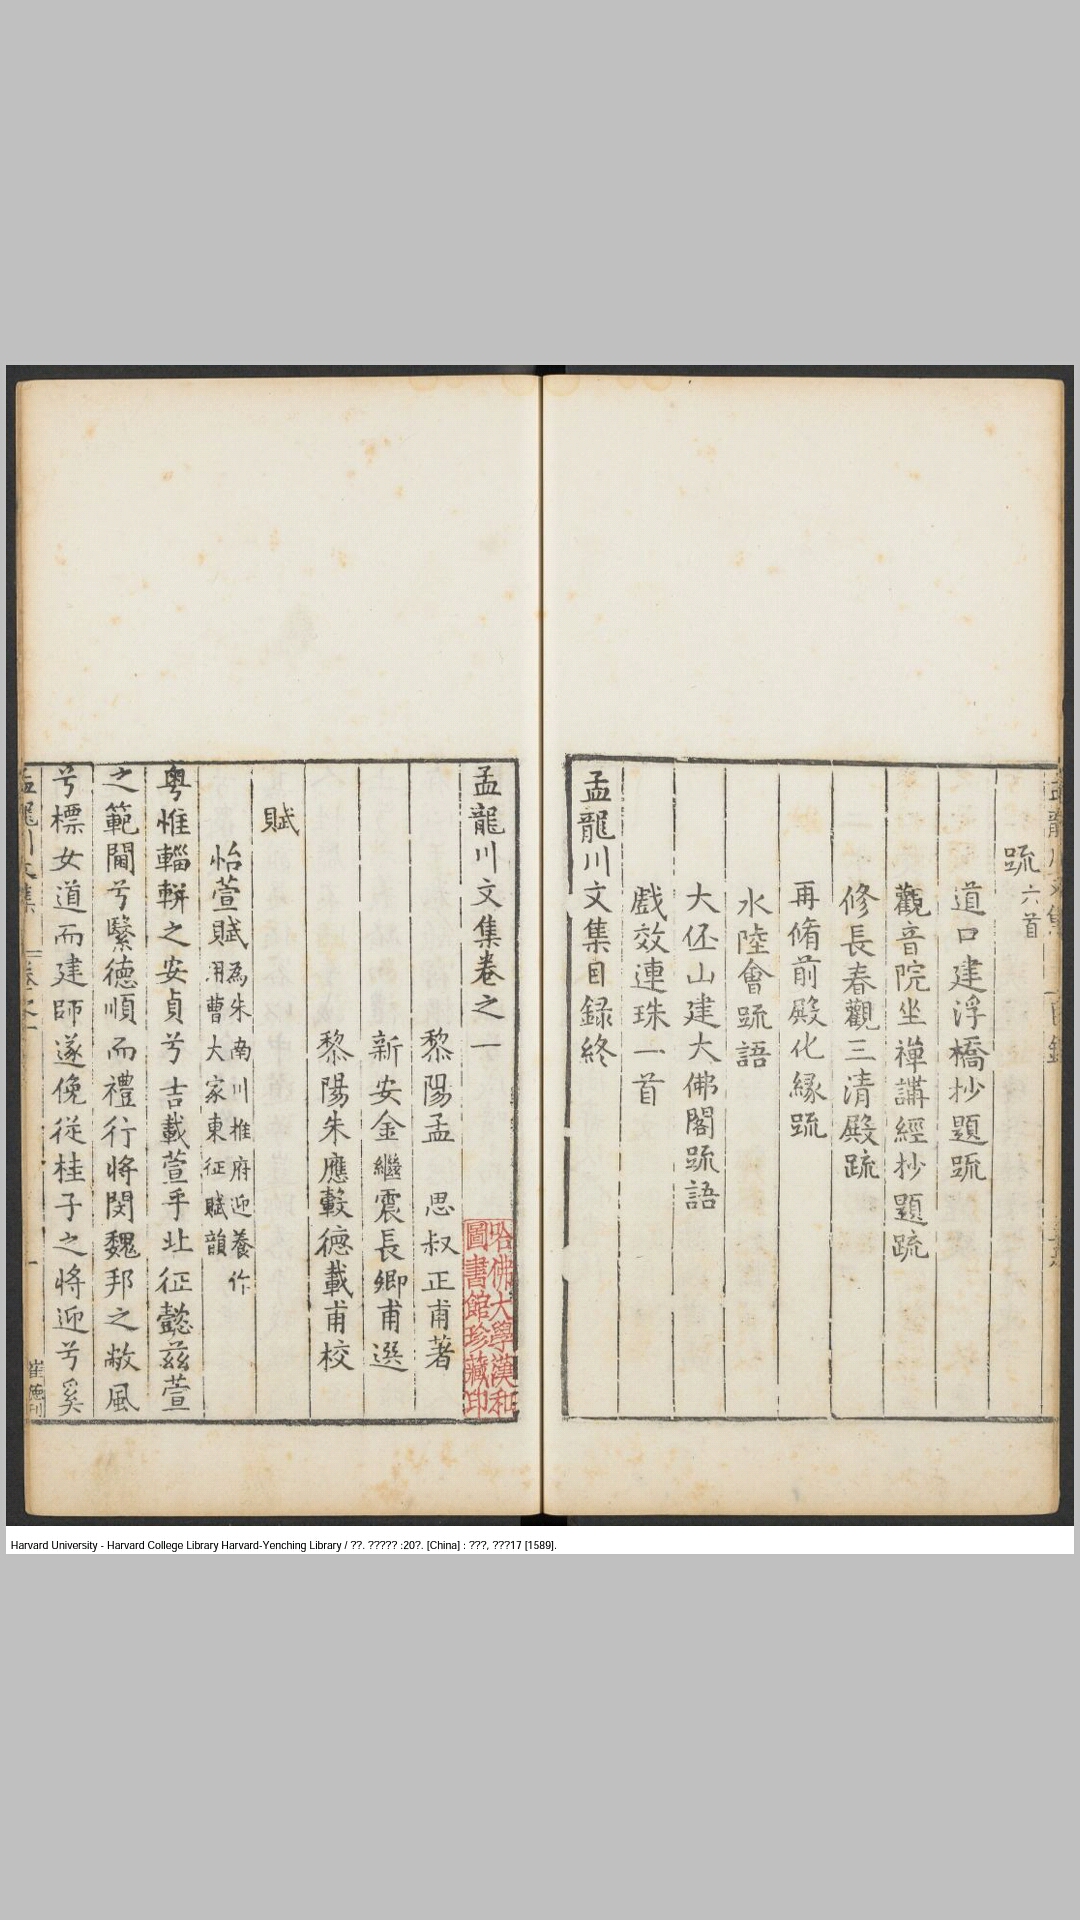 疏六首
道口建浮橋抄題疏
觀音院坐禪講經抄題疏
修長春觀三清殿疏
再脩前殿化緣疏
水陸會疏語
大伾山建大佛閣疏語
戲效連珠一首
孟龍川文集目録終
孟龍川文集卷之一
黎陽孟 思叔正甫著
新安金繼震長卿甫選
黎陽朱應轂德載甫校
賦
怡萱賦 為朱南川推府迎養作
用曹大家東征賦韻
粤惟輜軿之安貞兮吉載萱乎北征懿茲萱
之範閫兮繄德順而禮行將閔魏邦之敝風
兮標女道而建師遂俛從桂子之將迎兮奚
孟龍川文集 卷之一 一
哈佛大學漢和
圖書館珍藏印
Harvard University - Harvard College Library Harvard-Yenching Library / ??. ????? :20?. [China] : ???, ???17 [1589].